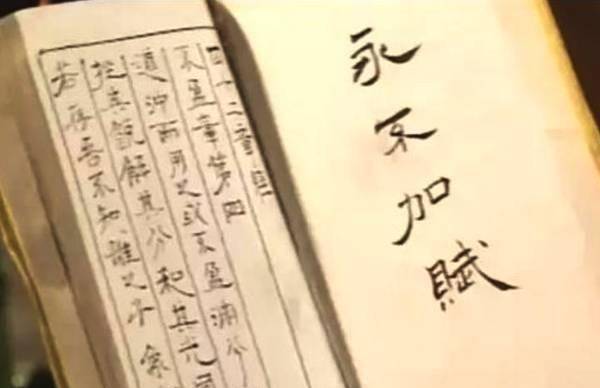 永不加賦
四十二章經
不盈章第四
道沖而用之或不盈淵兮
挫其銳解其分和其光
若存吾不知誰之子象